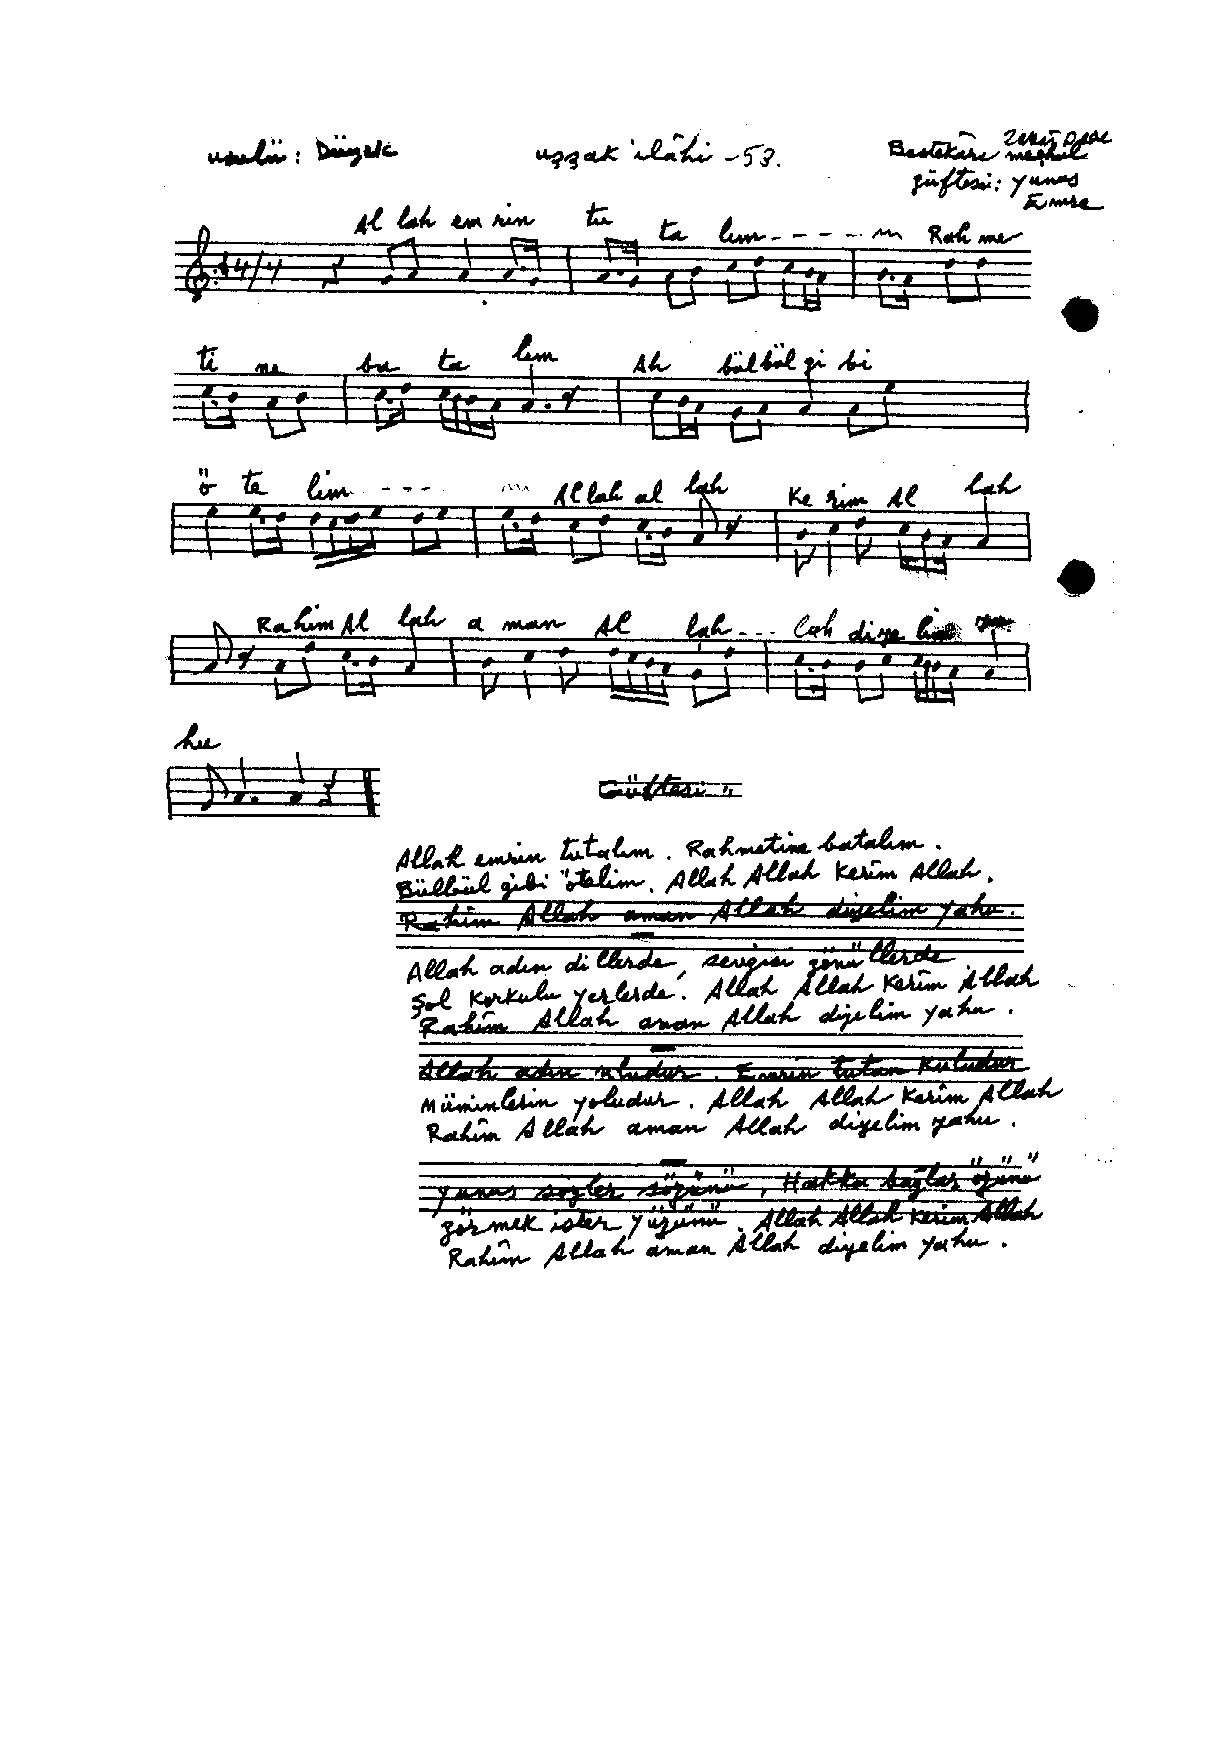 usulü: Düyek
uşşak ilâhi -53.
Zekâi Dede
Bestekârı meçhul
güftesi: Yunus
Emre
Al lah em rin tu ta lım - - - - - Rah me
4/4
ti ne ba ta lım Ah bülbül gi bi
ö te lim - - - - Allah al lah Ke rim Al lah
Rahim Al lah a man Al lah - - - lah diye lim
hu
Güftesi "
Allah emrin tutalım. Rahmetine batalım.
Bülbül gibi ötelim. Allah Allah Kerîm Allah.
Rahîm Allah aman Allah diyelim yahu.
Allah adın dillerde, sevgisi gönüllerde
Şol korkulu yerlerde. Allah Allah Kerîm Allah
Rahîm Allah aman Allah diyelim yahu.
Allah adın uludur. Emrin tutan kuludur
Müminlerin yoludur. Allah Allah Kerîm Allah
Rahîm Allah aman Allah diyelim yahu.
Yunus söyler sözünü, Hakka bağlar özünü
görmek ister yüzünü. Allah Allah Kerîm Allah
Rahîm Allah aman Allah diyelim yahu.